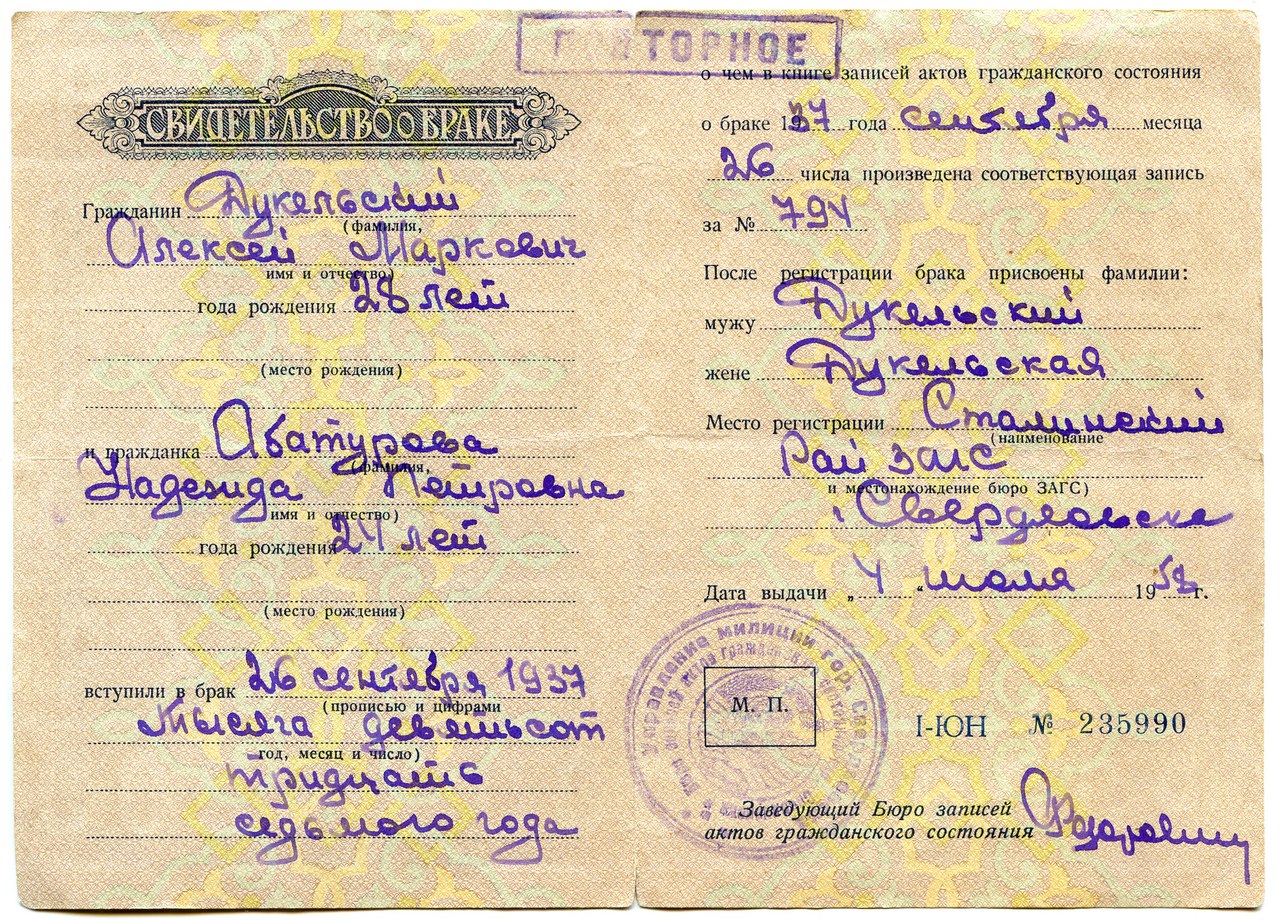 ПОВТОРНОЕ
СВИДЕТЕЛЬСТВО О БРАКЕ
Гражданин Дукельский
(фамилия,
Алексей Маркович
имя и отчество)
года рождения 28 лет
(место рождения)
и гражданка Абатурова
(фамилия,
Надежда Петровна
имя и отчество)
года рождения 24 лет
(место рождения)
вступили в брак 26 сентября 1937
(прописью и цифрами
тысяча девятьсот
год, месяц и число)
тридцать
седьмого года
о чем в книге записей актов гражданского состояния
о браке 1937 года сентября месяца
26 числа произведена соответствующая запись
за № 794
После регистрации брака присвоены фамилии:
мужу Дукельский
жене Дукельская
Место регистрации Сталинский
(наименование
Рай ЗАГС
и местонахождение бюро ЗАГС)
г. Свердловска
Дата выдачи „ 4 “ июля 1958 г.
Управление милиции гор. Све
М. П.
I-ЮН № 235990
Заведующий Бюро записей
актов гражданского состояния